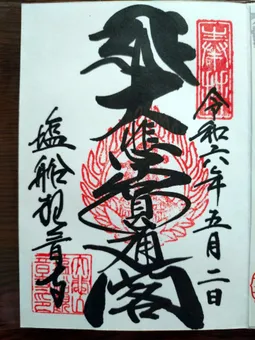 令和六年五月二日
大悲圓通閣
塩船観音寺